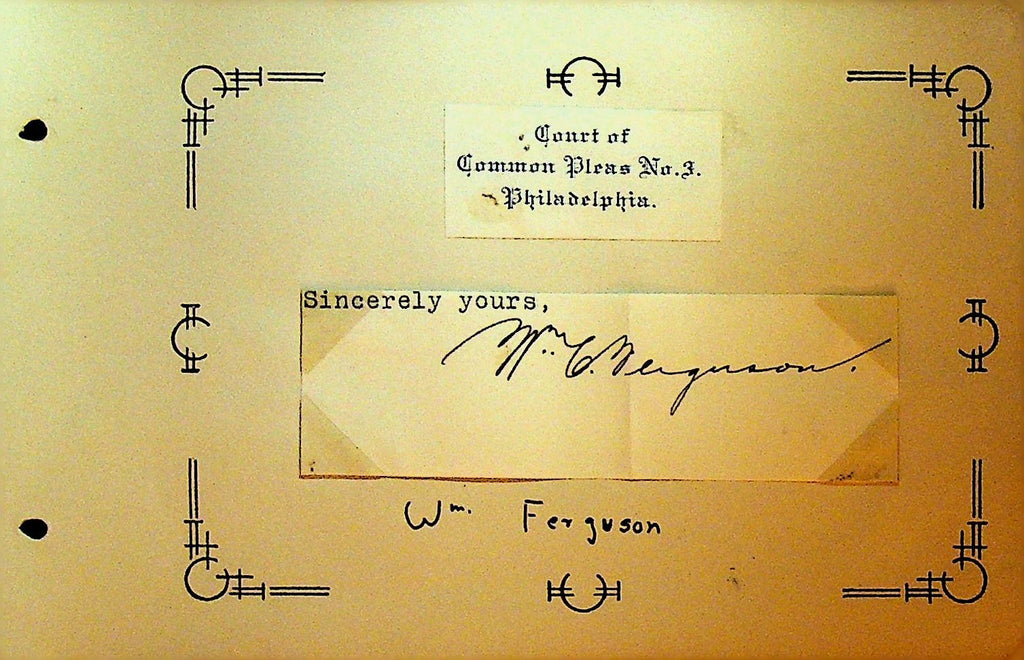 Court of
Common Pleas No. 3.
Philadelphia.
Sincerely yours,
Wm. C. Ferguson.
Wm. Ferguson